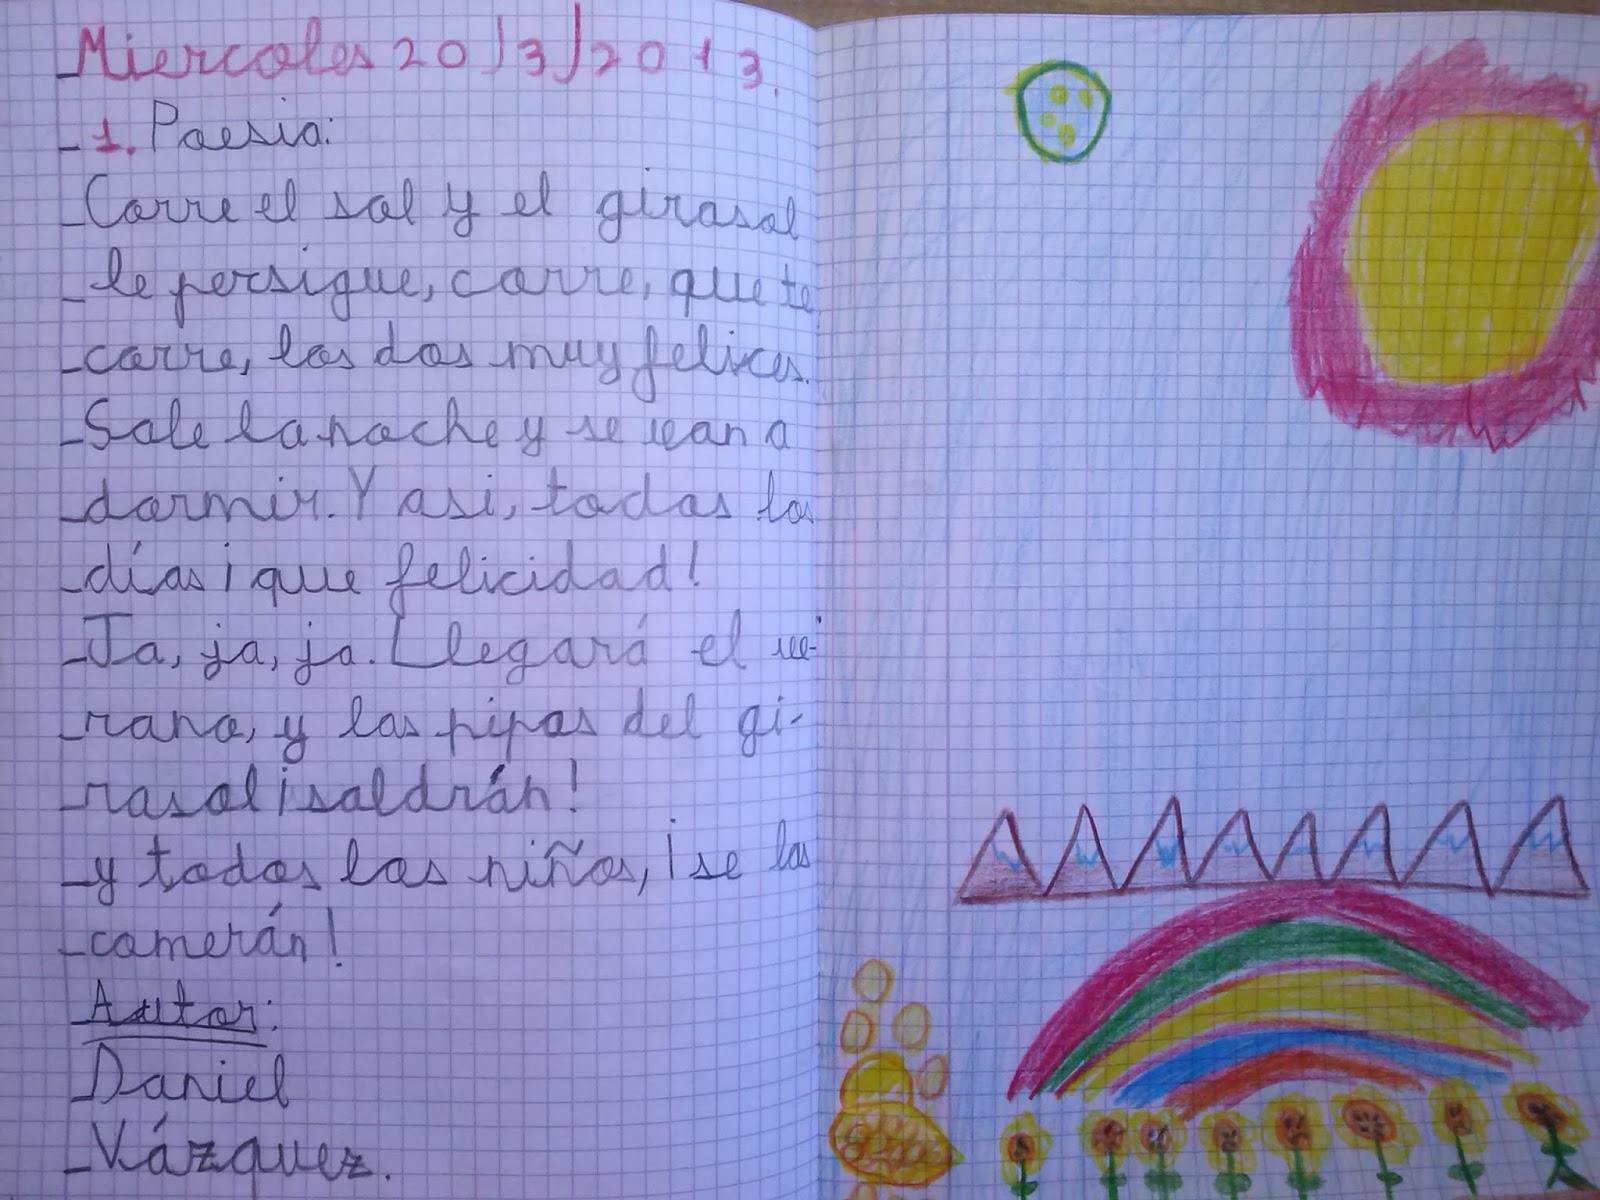 Miercoles 20/3/2013.
1. Poesia:
Corre el sol y el girasol
le persigue, corre, que te
corre, los dos muy felices.
Sale la noche y se vean a
dormir. Y asi, todos los
días ¡que felicidad!
Ja, ja, ja. Llegará el ve-
rano, y las pipas del gi-
rasol ¡saldrán!
y todos los niños, ¡se las
comerán!
Autor:
Daniel
Vázquez.